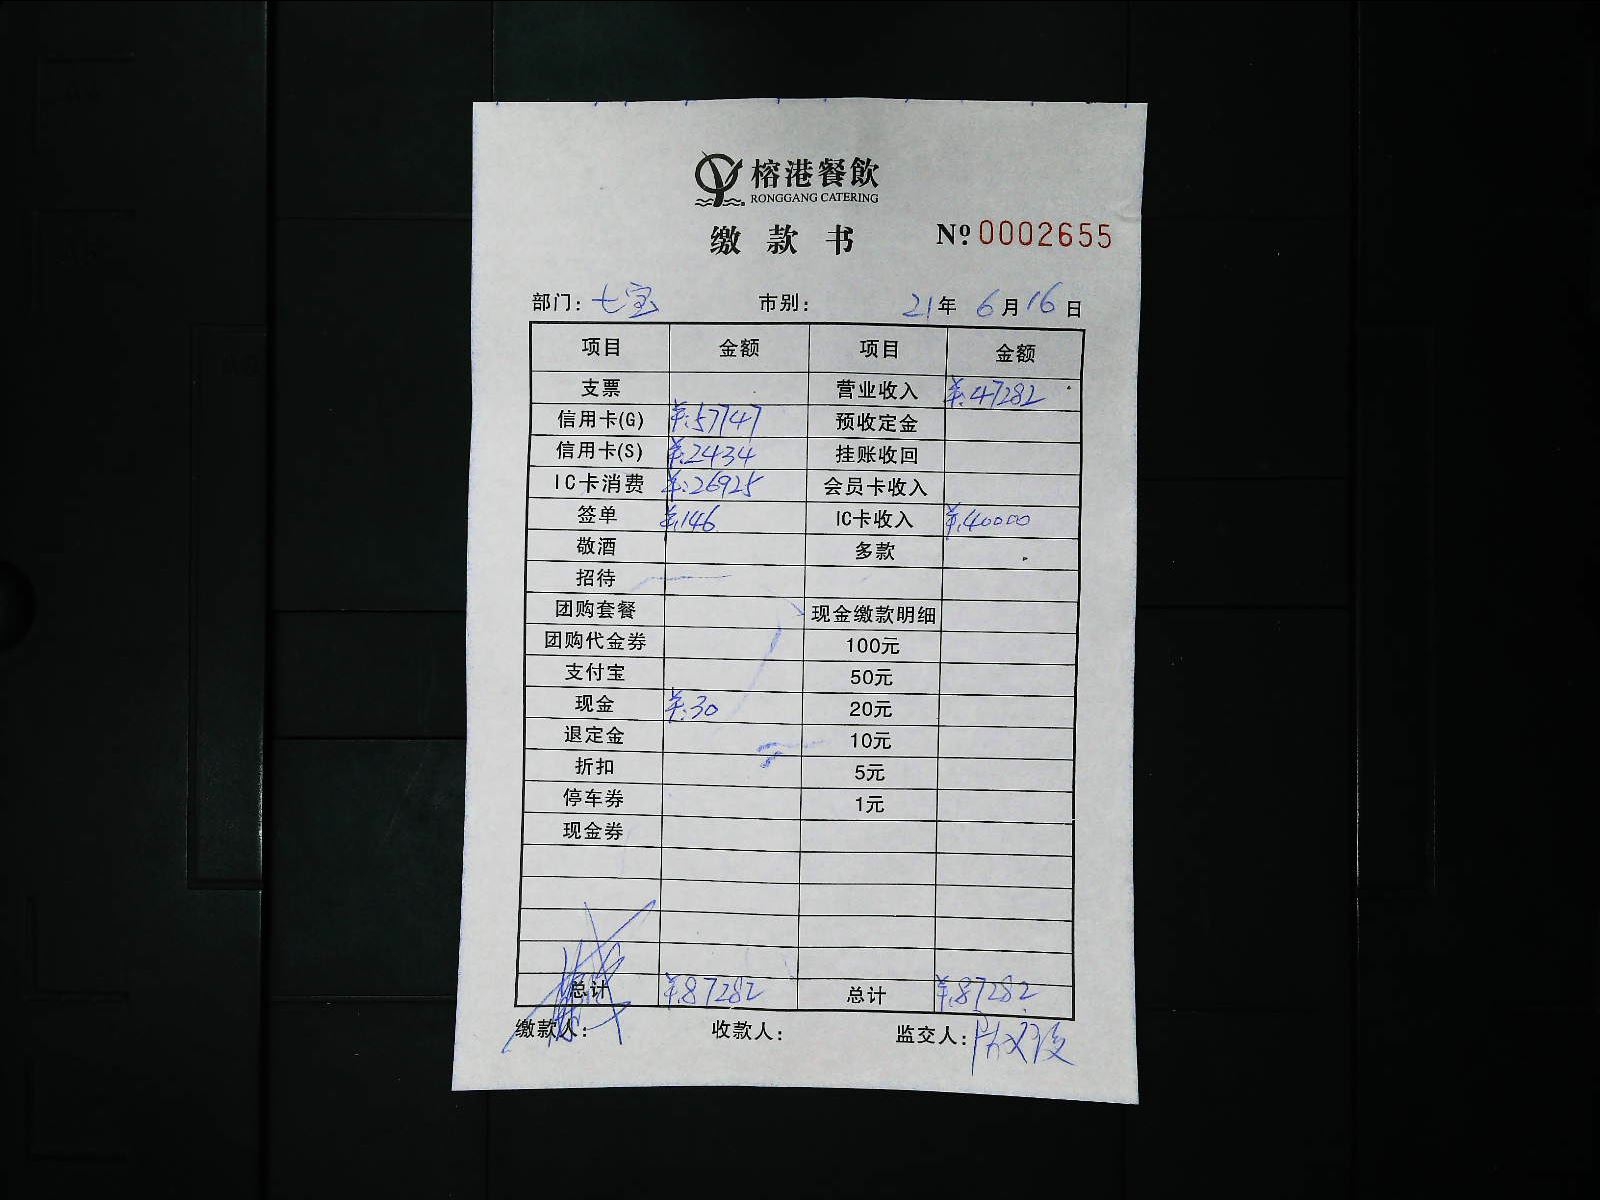 榕港餐飲
RONGGANG CATERING
缴款书 Nº 0002655
部门: 七宝 市别: 21年 6月16日
项目 金额 项目 金额
支票 营业收入 ¥:47282
信用卡(G) ¥:57747 预收定金
信用卡(S) ¥:2434 挂账收回
IC卡消费 ¥:26925 会员卡收入
签单 ¥:146 IC卡收入 ¥:40000
敬酒 多款
招待
团购套餐 现金缴款明细
团购代金券 100元
支付宝 50元
现金 ¥:30 20元
退定金 10元
折扣 5元
停车券 1元
现金券
总计 ¥:87282 总计 ¥:87282
缴款人: 收款人: 监交人: